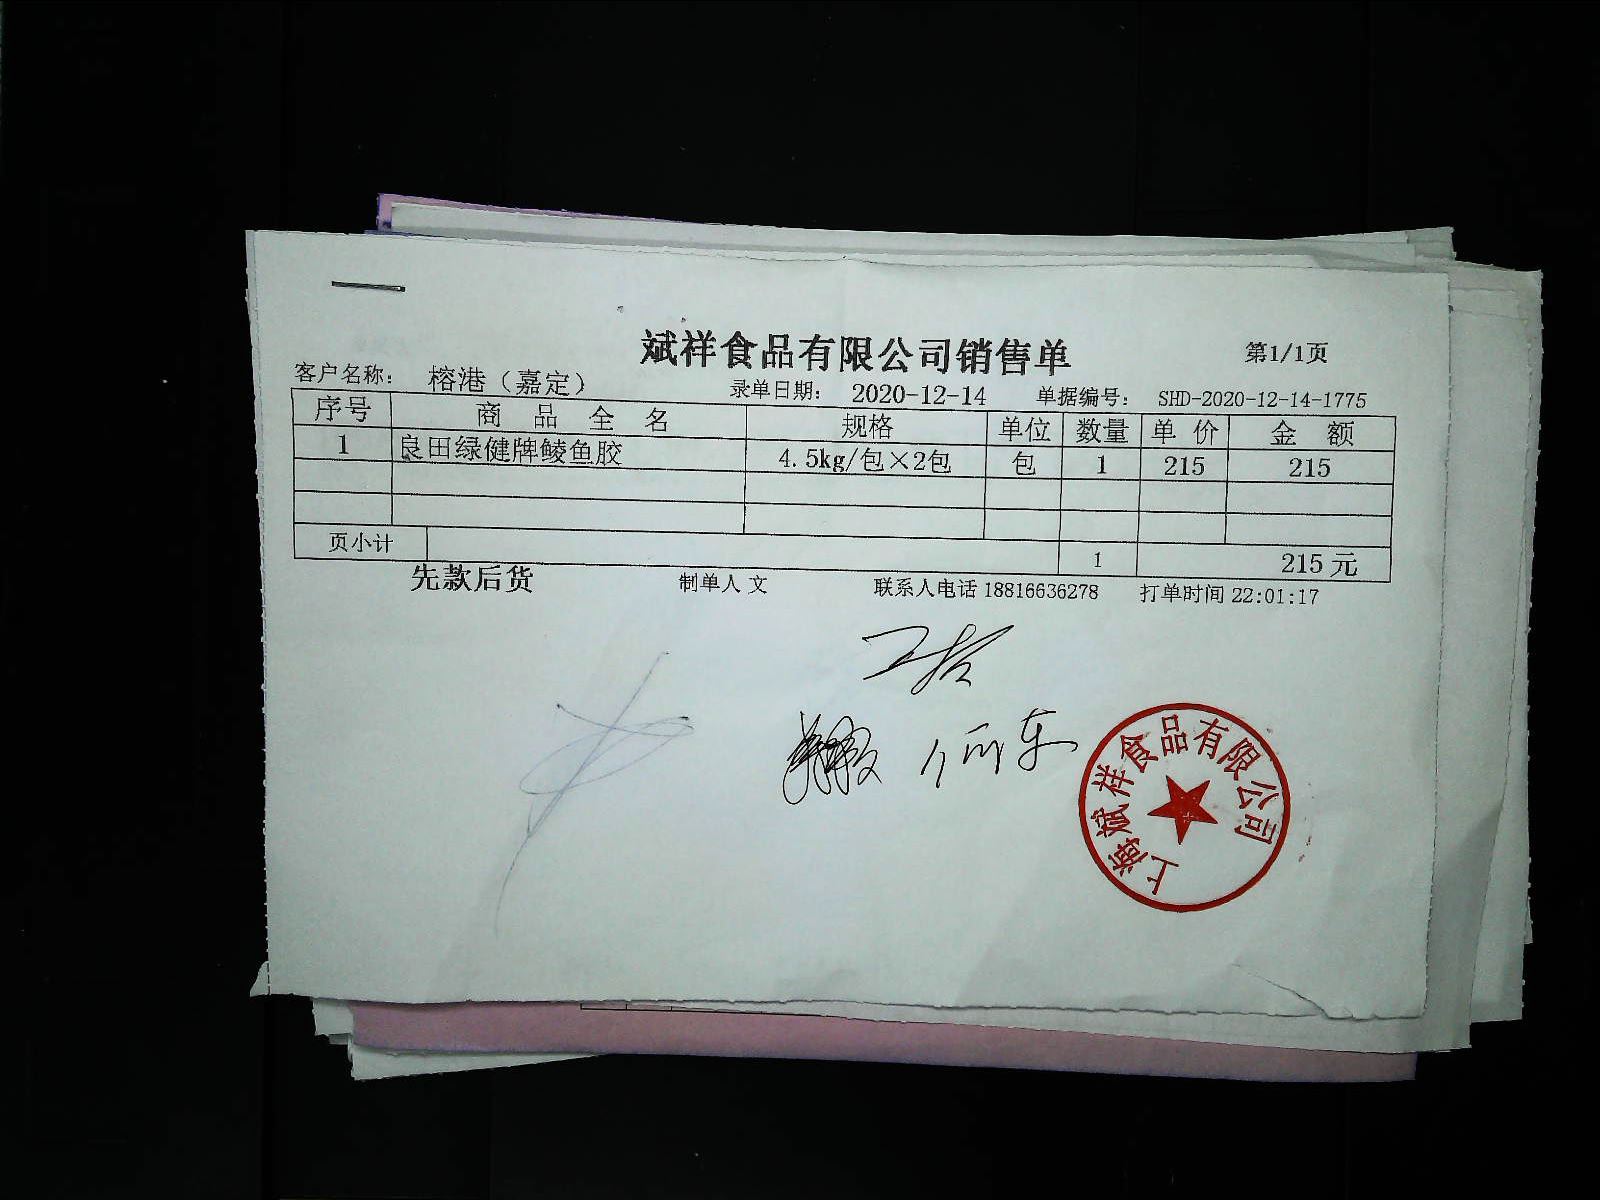 斌祥食品有限公司销售单
第1/1页
客户名称： 榕港（嘉定） 录单日期： 2020-12-14 单据编号： SHD-2020-12-14-1775
序号 商 品 全 名 规格 单位 数量 单 价 金 额
1 良田绿健牌鲮鱼胶 4.5kg/包×2包 包 1 215 215
页小计 1 215元
先款后货 制单人 文 联系人电话 18816636278 打单时间 22:01:17
上海斌祥食品有限公司